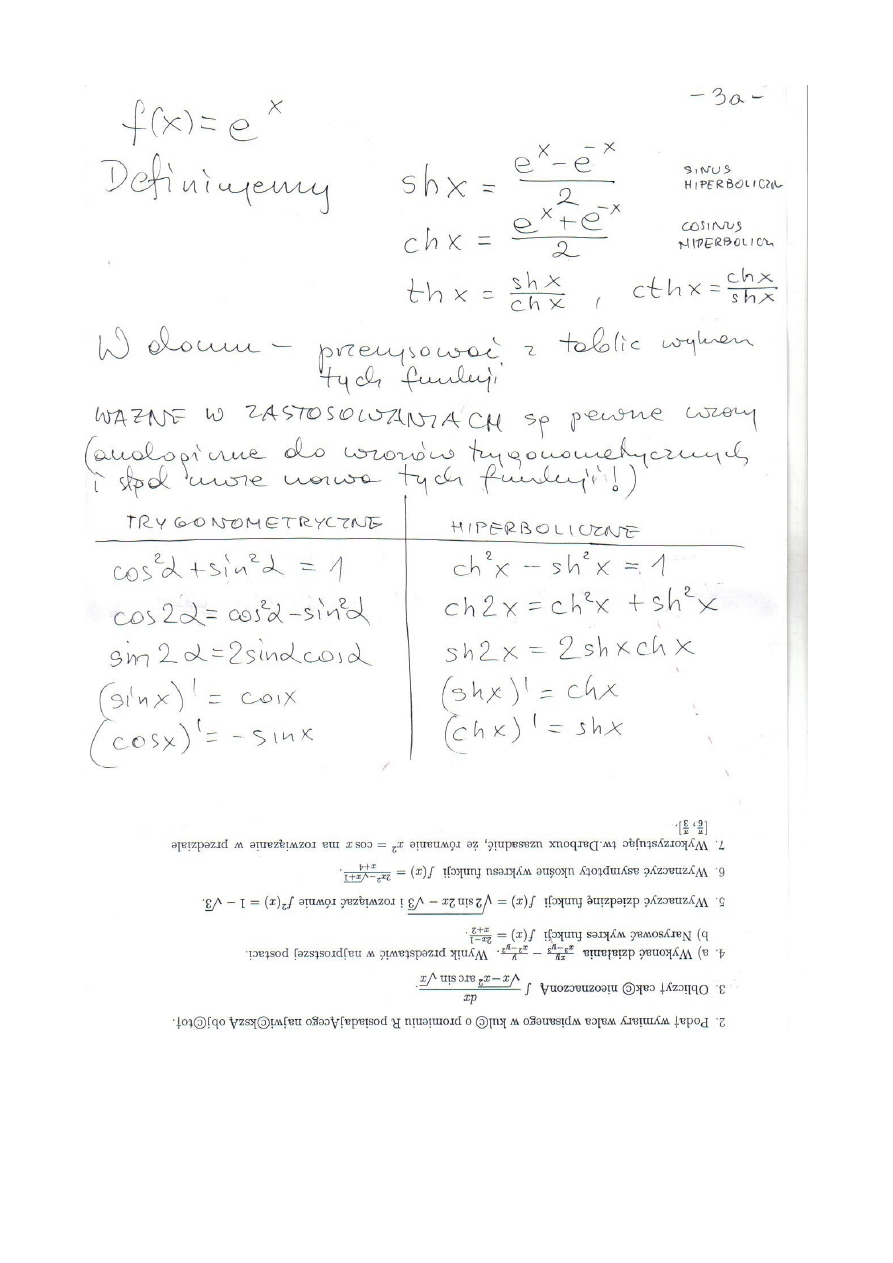 - 3a -
f(x) = e^x
Definiujemy shx = (e^x - e^-x)/2 SINUS HIPERBOLICZN
chx = (e^x + e^-x)/2 COSINUS HIPERBOLICZ
thx = shx/chx , cthx = chx/shx
W domu – przerysować z tablic wykres
tych funkcji
WAŻNE W ZASTOSOWANIACH są pewne wzory
(analogiczne do wzorów trygonometrycznych
i stąd nazwa tych funkcji!)
TRYGONOMETRYCZNE | HIPERBOLICZNE
cos²α + sin²α = 1 | ch²x - sh²x = 1
cos2α = cos²α - sin²α | ch2x = ch²x + sh²x
sin2α = 2sinαcosα | sh2x = 2shxchx
(sinx)' = cosx | (shx)' = chx
(cosx)' = -sinx | (chx)' = shx
2. Podaƭ wymiary walca wpisanego w kul© o promieniu R posiadaj Ącego najwi©kszĄ obj©toƭ.
3. Obliczyƭ cak© nieoznaczonĄ ∫ dx/(√(x-x²) arc sin √x).
4. a) Wykonać działania xy/(x³-y³) - y/(x²-y²). Wynik przedstawić w najprostszej postaci.
b) Narysować wykres funkcji f(x) = (2x-1)/(x+2).
5. Wyznaczyć dziedzinę funkcji f(x) = √(2 sin 2x - √3) i rozwiązać równie f²(x) = 1 - √3.
6. Wyznaczyć asymptoty ukośne wykresu funkcji f(x) = (2x²-√x+1)/(x+4).
7. Wykorzystując tw.Darboux uzasadnić, że równanie x² = cos x ma rozwiązanie w przedziale
[π/6, π/3].